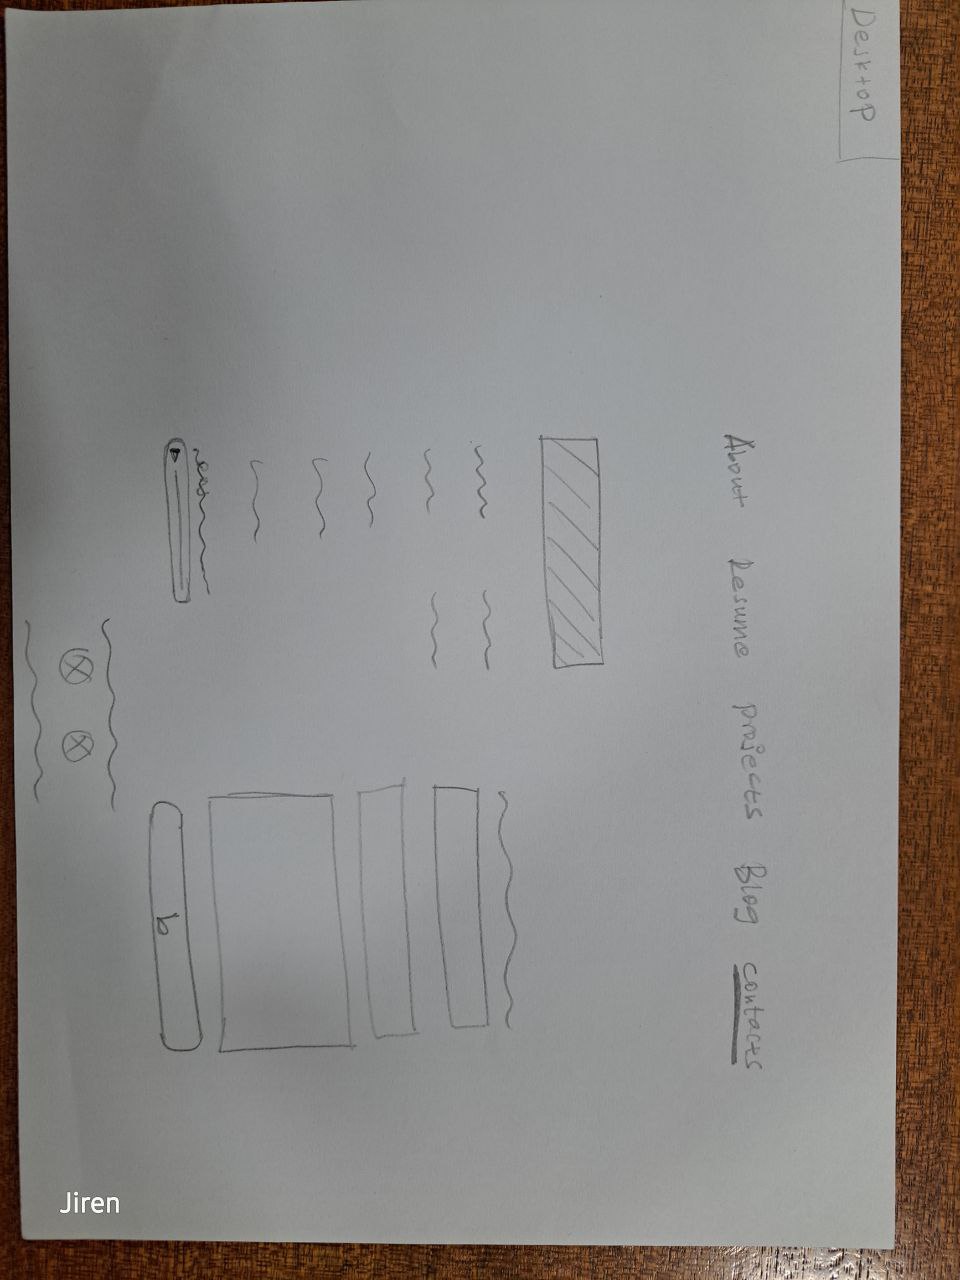 Desktop
About Resume projects Blog contacts
b
Jiren